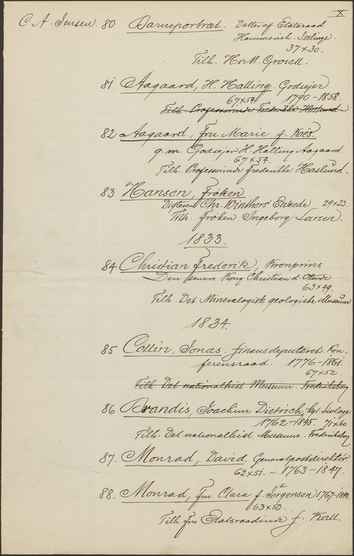 X
C. A. Jensen. 80 Barneportræt. Datter af Etatsraad
37 x 30.
Tilh.
81 Aagaard, H. Halling Godsejer
67 x 54. 1790-1858.
Tilh. Professorinde
82 Aagaard, Fru Marie g.
g. m. Godsejer H. Halling Aagaard
67 x 54.
Tilh. Professorinde Frederikke Haslund.
83 Hansen, Frøken
Digteren Chr. Winthers 29 x 23.
Tilh. Frøken Ingeborg
1833.
84 Christian Frederik, Kronprins
Den senere Kong Christian d. Ottende
63 x 49.
Tilh. Det Mineralogisk geologiske Museum
1834.
85 Collin, Jonas, Finansdeputeret Kon-
ferensraad. 1776-1861.
67 x 52
Tilh. Det nationalhist. Museum. Frederiksborg
86 Brandis, Joachim Dietrich, kgl. Livlæge
1762-1845. 70 x 60
Tilh. Det nationalhist. Museum. Frederiksborg
87. Monrad, David, Generalpostdirektør
62 x 51. - 1763-1847.
88. Monrad, Fru Clara f. Jørgensen 1767-
63 x 50.
Tilh. Fru Etatsraadinde J.